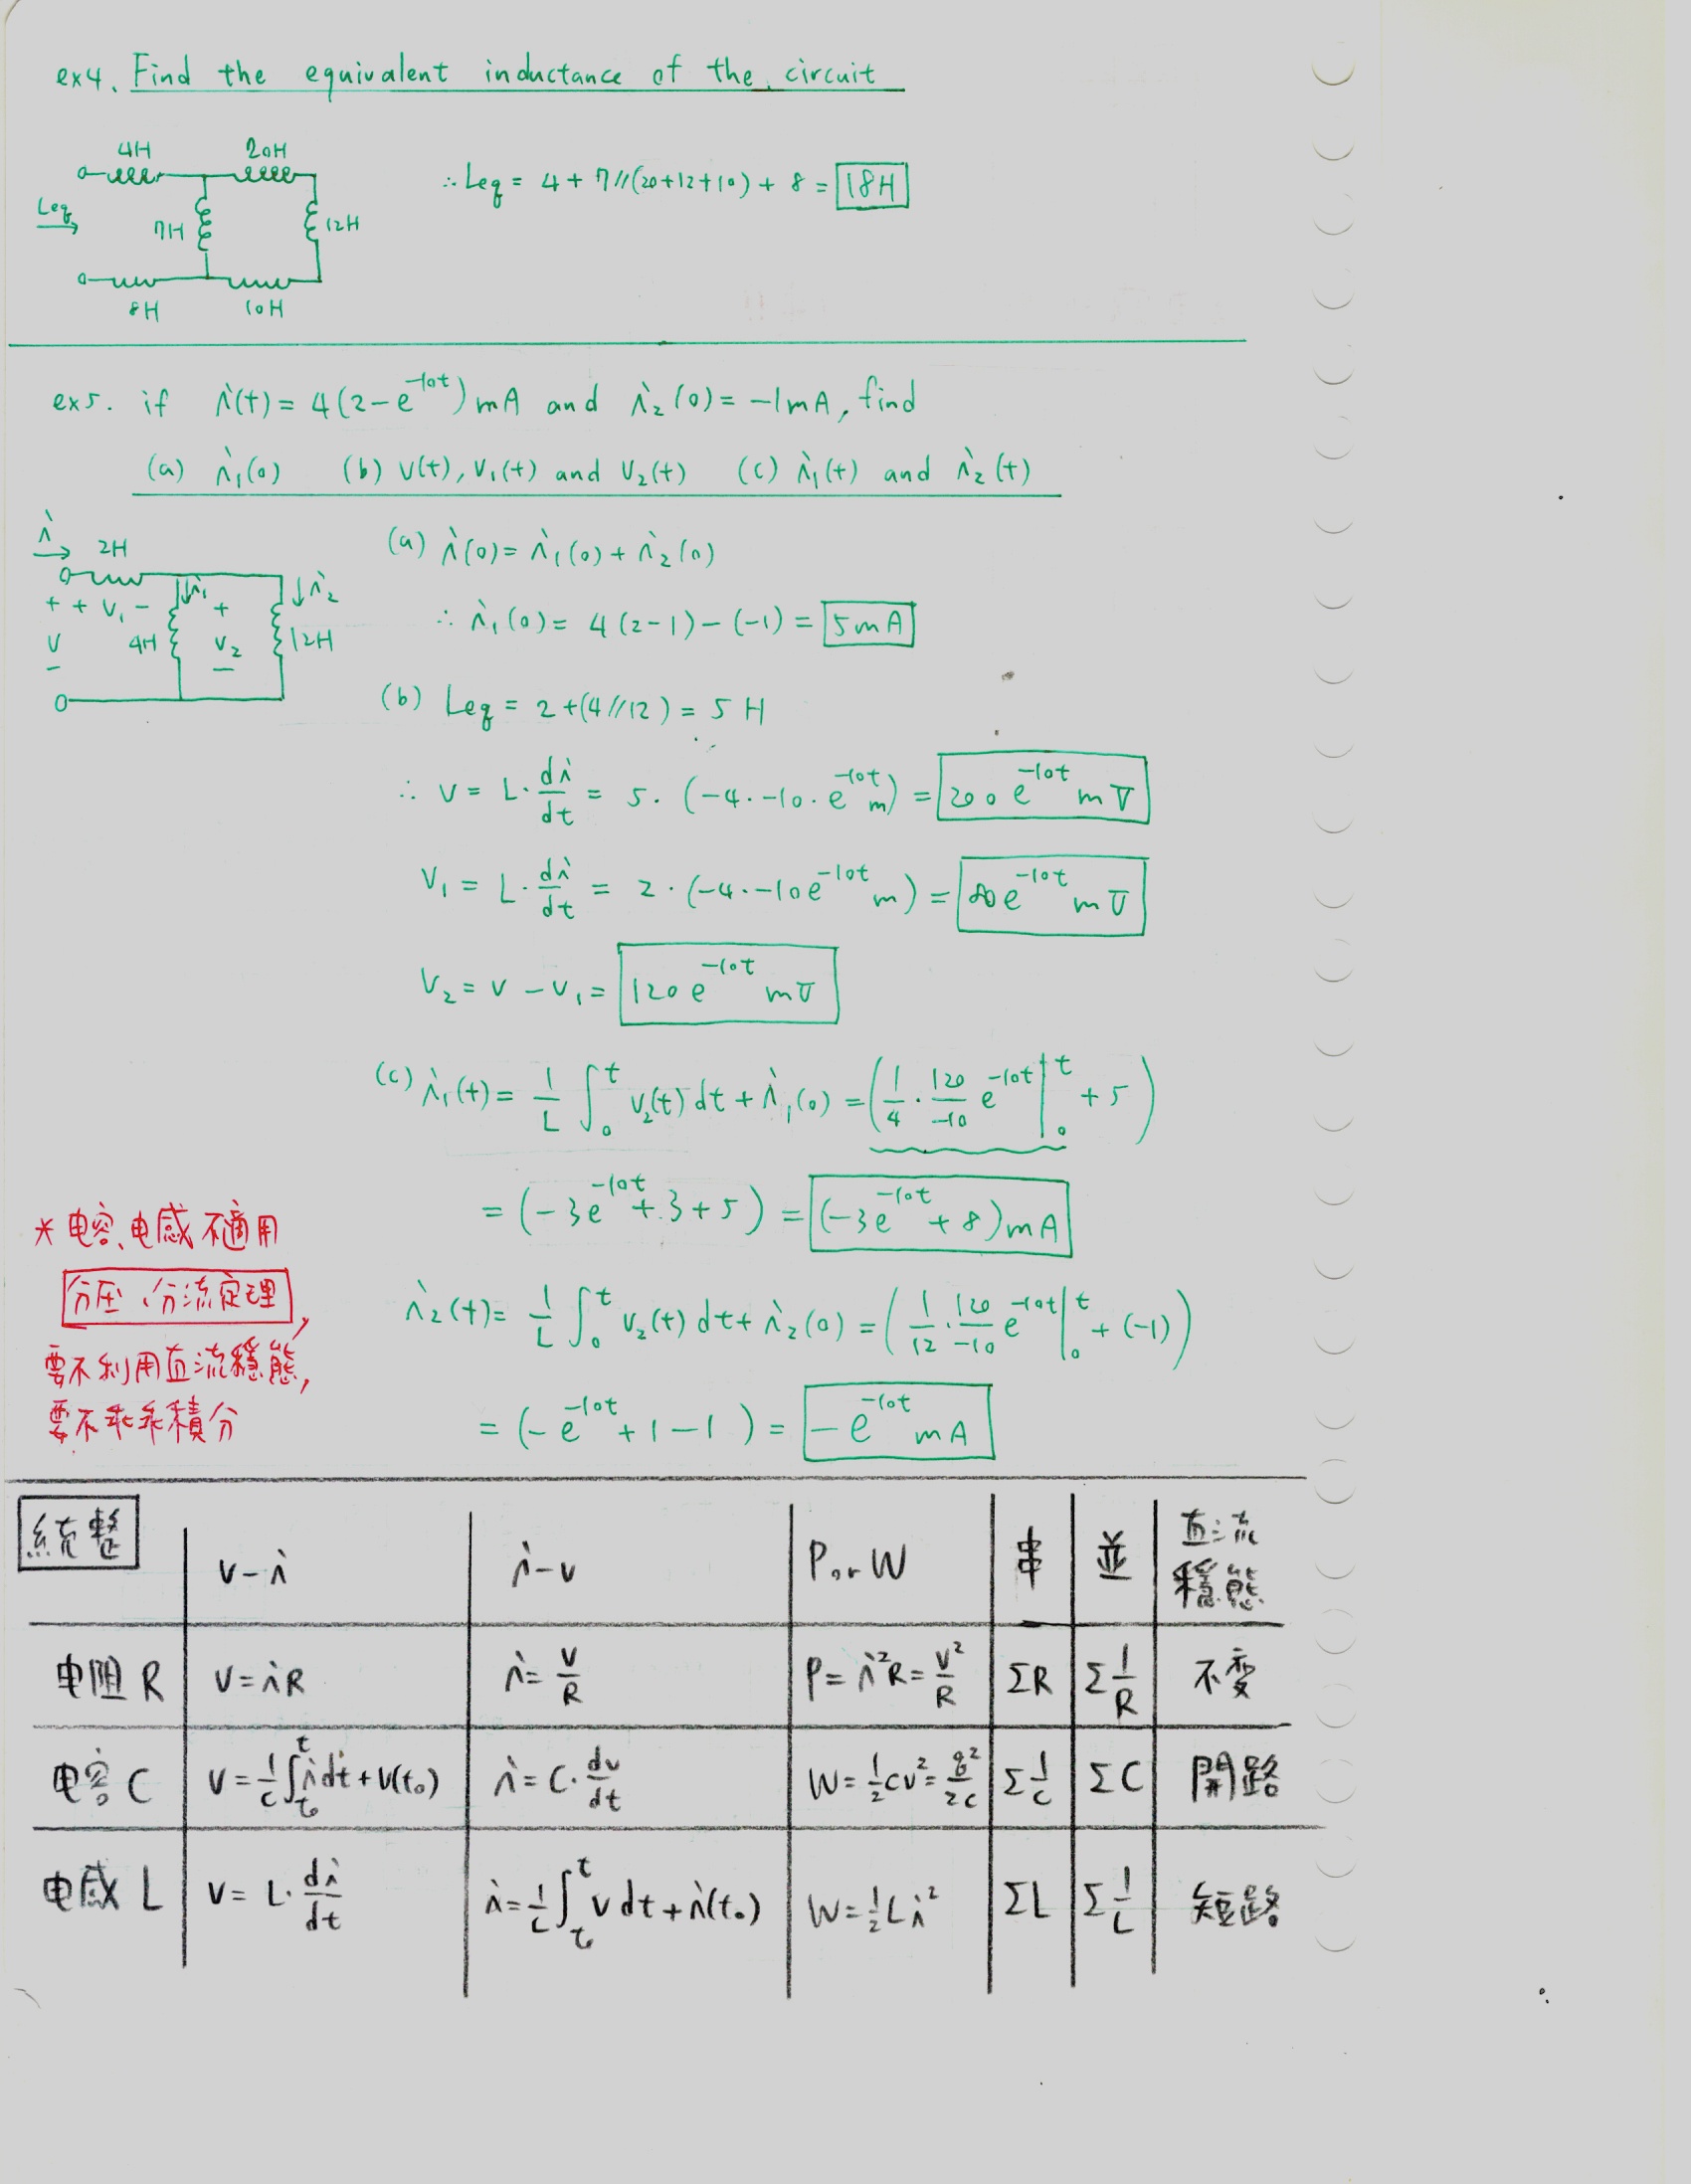 ex4. Find the equivalent inductance of the circuit
4H 20H
∴ Leq = 4 + 7//(20+12+10) + 8 = 18H
Leq
7H 12H
8H 10H
ex5. if i(t) = 4(2-e^{-10t}) mA and i₂(0) = -1mA, find
(a) i₁(0) (b) v(t), v₁(t) and v₂(t) (c) i₁(t) and i₂(t)
i 2H
i₁ i₂
+ + v₁ - +
v 4H v₂ 12H
- -
(a) i(0) = i₁(0) + i₂(0)
∴ i₁(0) = 4(2-1)-(-1) = 5mA
(b) Leq = 2+(4//12) = 5 H
∴ v = L·di/dt = 5·(-4·-10·e^{-10t}m) = 200e^{-10t} mV
v₁ = L·di/dt = 2·(-4·-10e^{-10t}m) = 80e^{-10t} mV
v₂ = v - v₁ = 120e^{-10t} mV
(c) i₁(t) = 1/L ∫₀^t v₂(t) dt + i₁(0) = (1/4 · 120/-10 e^{-10t}|₀^t + 5)
= (-3e^{-10t} + 3 + 5) = (-3e^{-10t} + 8) mA
i₂(t) = 1/L ∫₀^t v₂(t) dt + i₂(0) = (1/12 · 120/-10 e^{-10t}|₀^t + (-1))
= (-e^{-10t} + 1 - 1) = -e^{-10t} mA
* 电容、电感不適用
分压、分流定理,
要不利用直流穩態,
要不乖乖積分
統整 v-i i-v P or W 串 並 直流穩態
电阻 R v = iR i = v/R P = i²R = v²/R ΣR Σ1/R 不变
电容 C v = 1/C ∫_{t₀}^t i dt + v(t₀) i = C·dv/dt W = 1/2 Cv² = q²/2C Σ1/C ΣC 開路
电感 L v = L·di/dt i = 1/L ∫_{t₀}^t v dt + i(t₀) W = 1/2 Li² ΣL Σ1/L 短路